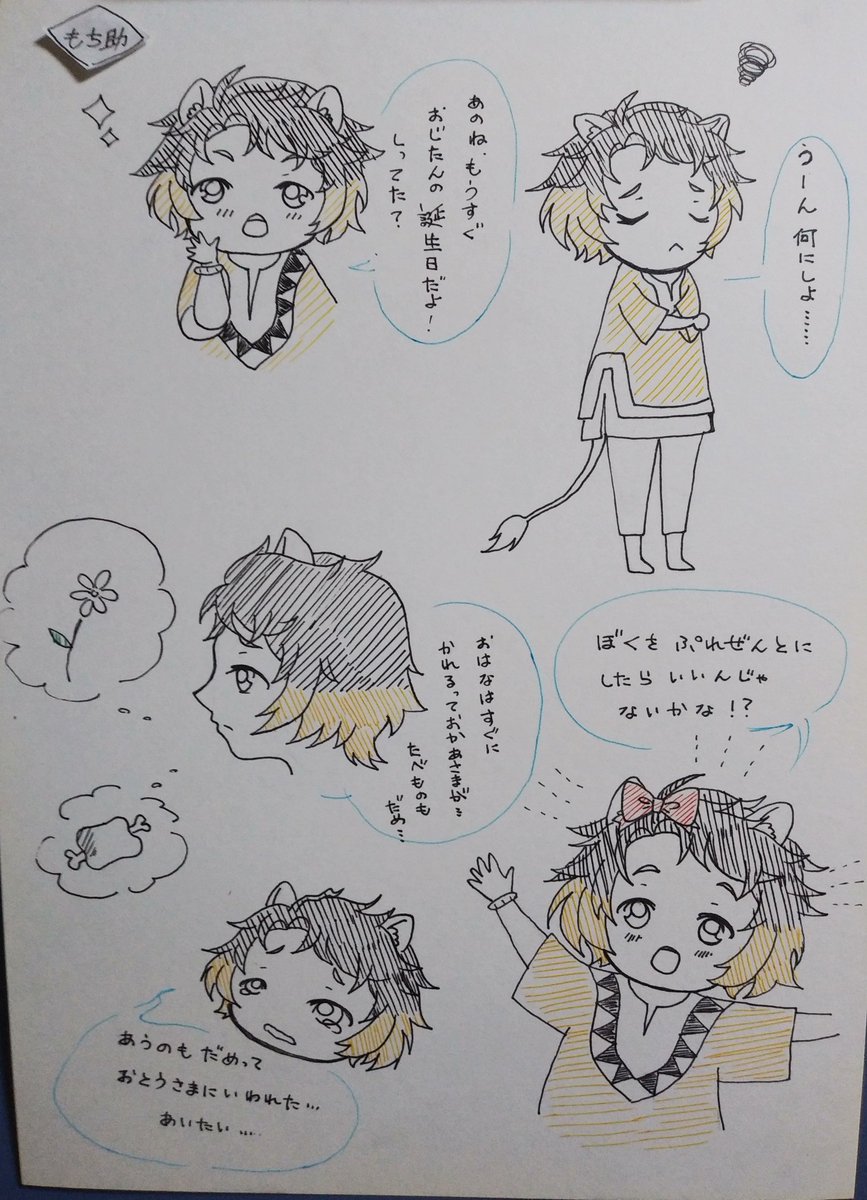 もち助
あのね、もうすぐ
おじたんの誕生日だよ!
しってた?
うーん 何にしよ……
おはなはすぐに
かれるっておかあさまが…
たべものも
だめ…
あうのもだめって
おとうさまにいわれた…
あいたい….
ぼくを ぷれぜんとに
したら いいんじゃ
ないかな!?